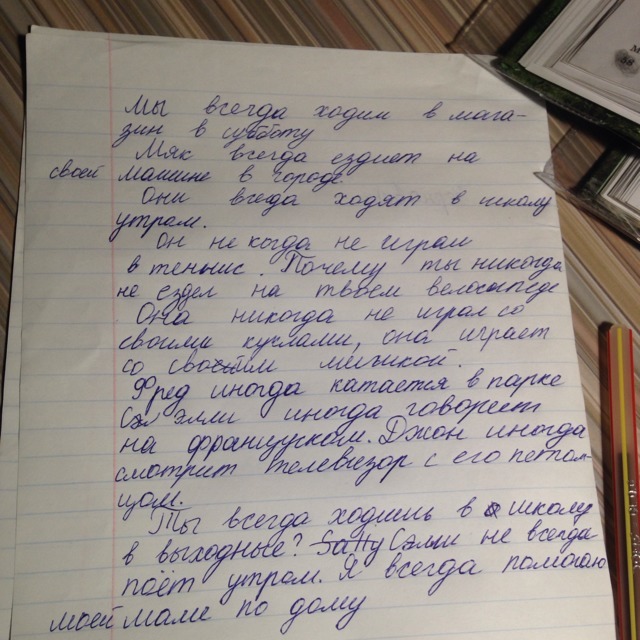 Мы всегда ходим в мага-
зин в субботу
Мяк всегда ездиет на
своей машине в городе
Они вседа ходят в школу
утрам.
он не когда не играл
в теннис. Почему ты никогда
не ездел на твоем велосипеде
Она никогда не играл со
своими куклами, она играет
со своей мишкой.
Фред иногда катается в парке
Сэлли иногда говореет
на француском. Джон иногда
смотрит телевизор с его петом-
цом.
Ты всегда ходишь в школу
в выходные? Sally Сэлли не всегда
поёт утром. Я всегда помогаю
моей маме по дому